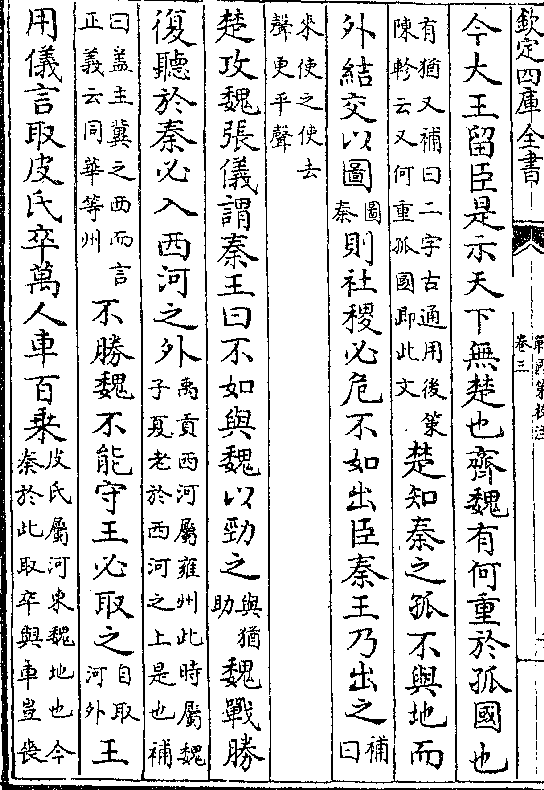 欽定四庫全書
卷三
今大王留臣是示天下無楚也齊魏有何重於孤國也
有猶又補曰二字古通用後策
陳軫云又何重孤國即此文
楚知秦之孤不與地而
外結交以圖
圖
秦
則社稷必危不如出臣秦王乃出之
補
曰
來使之使去
聲更平聲
楚攻魏張儀謂秦王曰不如與魏以勁之
與猶
助
魏戰勝
復聽於秦必入西河之外
禹貢西河屬雍州此時屬魏
子夏老於西河之上是也補
曰蓋主冀之西而言
正義云同華等州
不勝魏不能守王必取之
自取
河外
王
用儀言取皮氏卒萬人車百乘
皮氏屬河東魏地也今
秦於此取卒與車豈喪